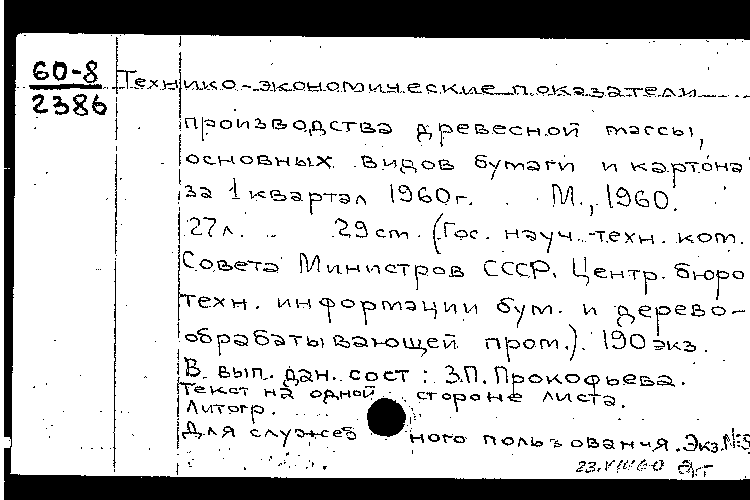 60-8
2386
Технико-экономические показатели
производства древесной массы,
основных видов бумаги и картона
за 1 квартал 1960г. М., 1960.
27л. 29 см. (Гос. науч.-техн. ком.
Совета Министров СССР. Центр. бюро
техн. информации бум. и дерево-
обрабатывающей пром.). 190 экз.
В вып. дан. сост: З.П. Прокофьева.
Текст на одной стороне листа.
Литогр.
Для служеб ного пользования. Экз.№